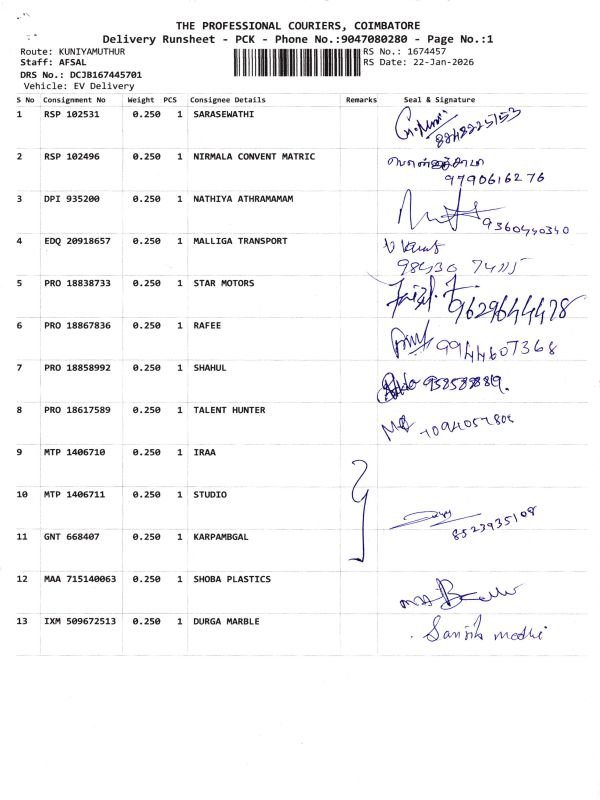 THE PROFESSIONAL COURIERS, COIMBATORE
Delivery Runsheet - PCK - Phone No.:9047080280 - Page No.:1
Route: KUNIYAMUTHUR RS No.: 1674457
Staff: AFSAL RS Date: 22-Jan-2026
DRS No.: DCJB167445701
Vehicle: EV Delivery
S No Consignment No Weight PCS Consignee Details Remarks Seal & Signature
1 RSP 102531 0.250 1 SARASEWATHI
8848225153
2 RSP 102496 0.250 1 NIRMALA CONVENT MATRIC
9790616276
3 DPI 935200 0.250 1 NATHIYA ATHRAMAMAM
9360440340
4 EDQ 20918657 0.250 1 MALLIGA TRANSPORT
98430
5 PRO 18838733 0.250 1 STAR MOTORS
9629644478
6 PRO 18867836 0.250 1 RAFEE
9944607368
7 PRO 18858992 0.250 1 SHAHUL
8 PRO 18617589 0.250 1 TALENT HUNTER
9 MTP 1406710 0.250 1 IRAA
10 MTP 1406711 0.250 1 STUDIO
8523935108
11 GNT 668407 0.250 1 KARPAMBGAL
12 MAA 715140063 0.250 1 SHOBA PLASTICS
13 IXM 509672513 0.250 1 DURGA MARBLE